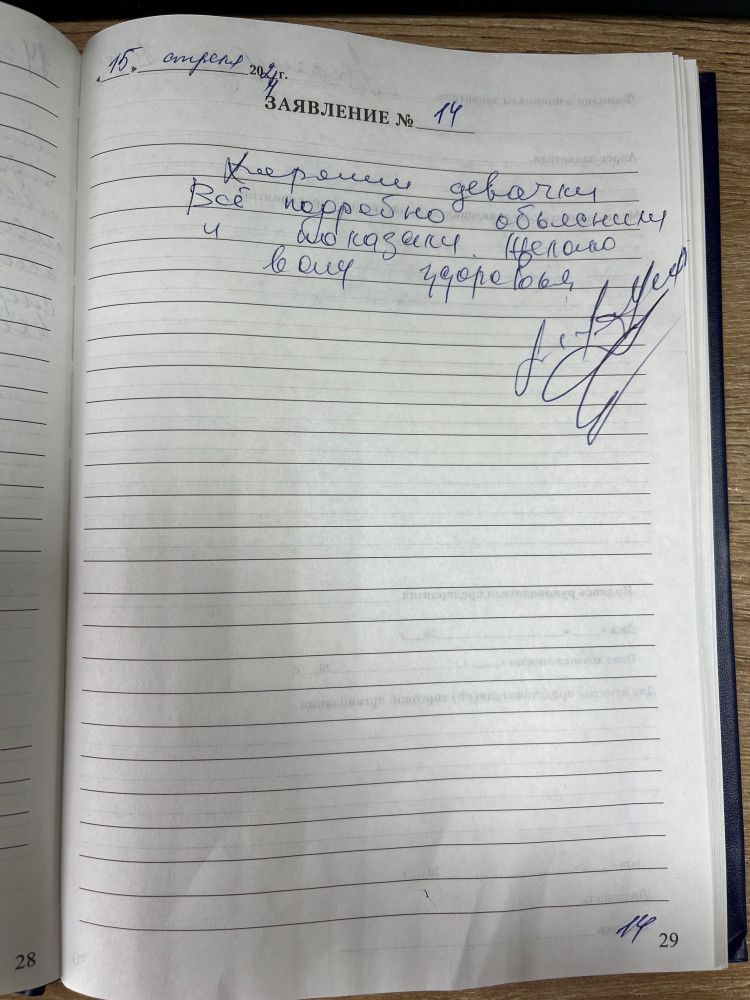 «15» апреля 2024 г.
ЗАЯВЛЕНИЕ № 14
девачки
Всё подробно обьяснили
и показали. Желаю
вам здоровья
14
29
28